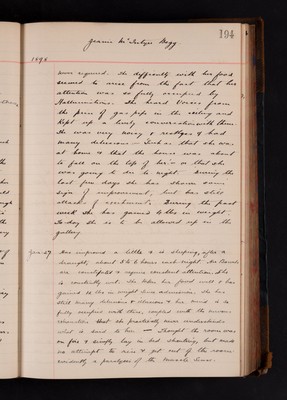 194
Jeanie McIntyre Begg
1898
never required. The difficulty with her food
seemed to arise from the fact that her
attention was so fully occupied by
Hallucinations. She heard Voices from
the piece of gas pipe in the ceiling and
kept up a lively conversation with them
She was very noisy & restless & had
many delusions — Such as that she was
at home & that the house was about
to fall on the top of her or that she
was going to die to night. During the
last few days she has shewn some
sign of improvement, but has still
attacks of excitement. During the past
week she has gained 4 lbs in weight.
To-day she is to be allowed up in the
gallery
27 Has improved a little & is sleeping, after a
draught, about 5 to 6 hours each night. Her Bowels
are constipated & require constant attention. She
is constantly wet. She takes her food well & has
gained in weight since admission. She has
still many delusions & illusions & her mind is so
fully occupied with these, coupled with the
that she practically never understands
what is said to her — Thought the room was
on fire & simply lay in bed shouting, but made
no attempt to rise & get out of the room
evidently a paralysis of the Muscle Sense.